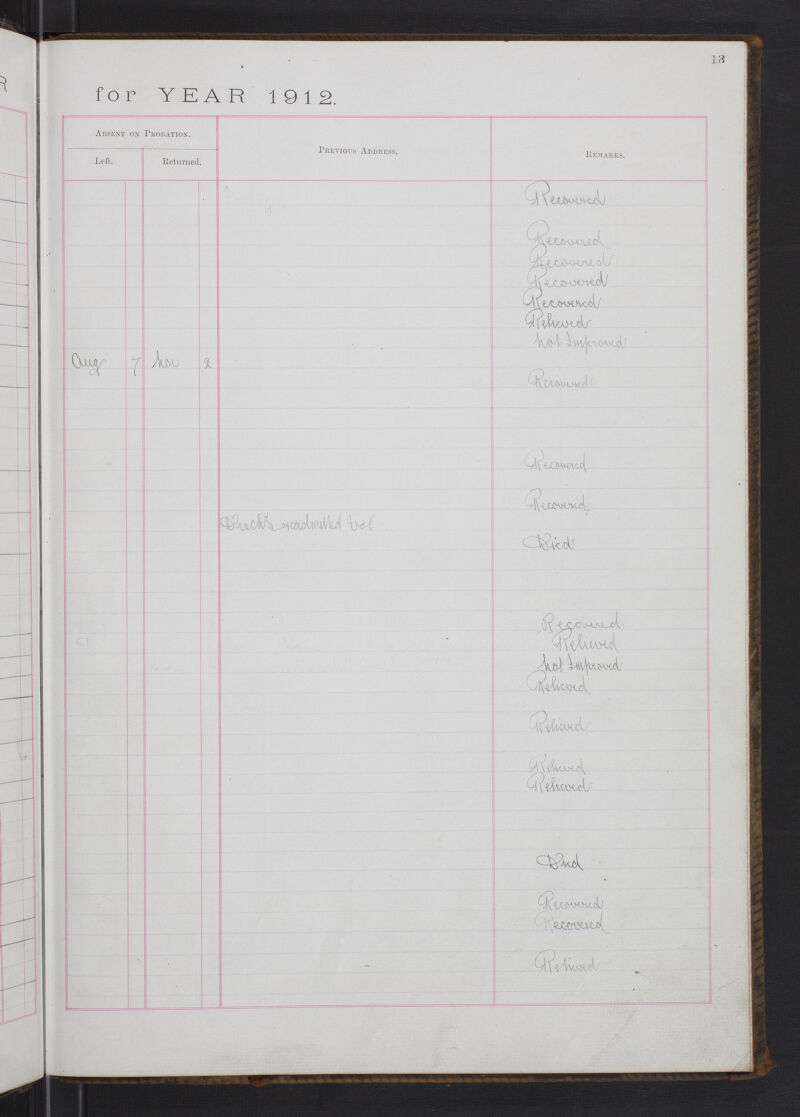 13
for YEAR 1912.
ABSENT ON PROBATION.
Left.
Returned.
PREVIOUS ADDRESS.
REMARKS.
Recovered
Recovered
Recovered
Recovered
Recovered
Relieved
Not Improved
Aug 7 Nov 2
Recovered
Recovered
Recovered
readmitted Vol
Died
Recovered
Relieved
Not Improved
Relieved
Relieved
Relieved
Relieved
Died
Recovered
Recovered
Relieved